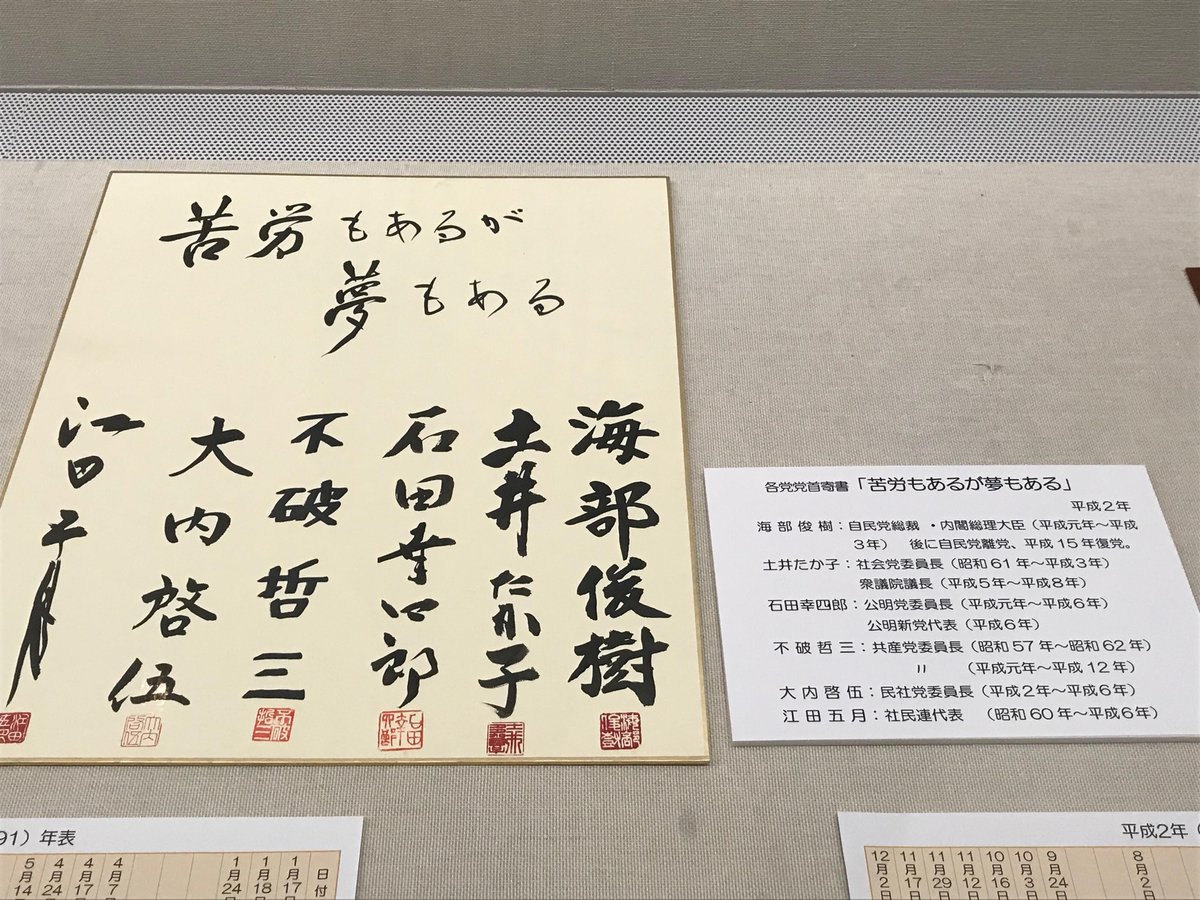 苦労もあるが
夢もある
海部俊樹
土井たか子
石田幸四郎
不破哲三
大内啓伍
江田五月
各党党首寄書「苦労もあるが夢もある」
平成２年
海部俊樹：自民党総裁・内閣総理大臣（平成元年～平成
３年）　後に自民党離党、平成15年復党。
土井たか子：社会党委員長（昭和61年～平成３年）
衆議院議長（平成５年～平成８年）
石田幸四郎：公明党委員長（平成元年～平成６年）
公明新党代表（平成６年）
不破哲三：共産党委員長（昭和57年～昭和62年）
〃　（平成元年～平成12年）
大内啓伍：民社党委員長（平成２年～平成６年）
江田五月：社民連代表　（昭和60年～平成６年）
91）年表
日付
1月17
1月18
1月24
4月7
4月17
4月24
5月14
平成2年（
8月2
9月24
10月3
10月16
11月12
11月29
11月17
12月2